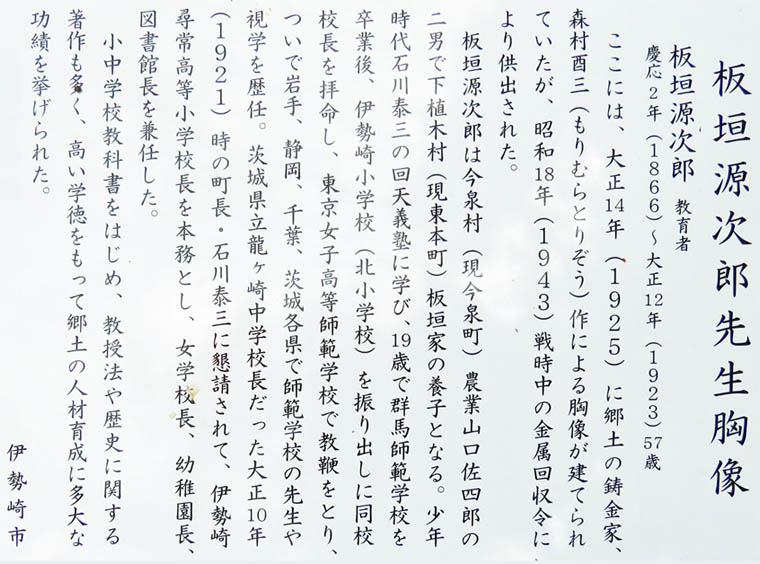 板垣源次郎先生胸像
板垣源次郎 教育者
慶応2年（1866）～大正12年（1923）57歳
ここには、大正14年（1925）に郷土の鋳金家、
森村酉三（もりむらとりぞう）作による胸像が建てられ
ていたが、昭和18年（1943）戦時中の金属回収令に
より供出された。
板垣源次郎は今泉村（現今泉町）農業山口佐四郎の
二男で下植木村（現東本町）板垣家の養子となる。少年
時代石川泰三の回天義塾に学び、19歳で群馬師範学校を
卒業後、伊勢崎小学校（北小学校）を振り出しに同校
校長を拝命し、東京女子高等師範学校で教鞭をとり、
ついで岩手、静岡、千葉、茨城各県で師範学校の先生や
視学を歴任。茨城県立龍ヶ崎中学校長だった大正10年
（1921）時の町長・石川泰三に懇請されて、伊勢崎
尋常高等小学校長を本務とし、女学校長、幼稚園長、
図書館長を兼任した。
小中学校教科書をはじめ、教授法や歴史に関する
著作も多く、高い学徳をもって郷土の人材育成に多大な
功績を挙げられた。
伊勢崎市